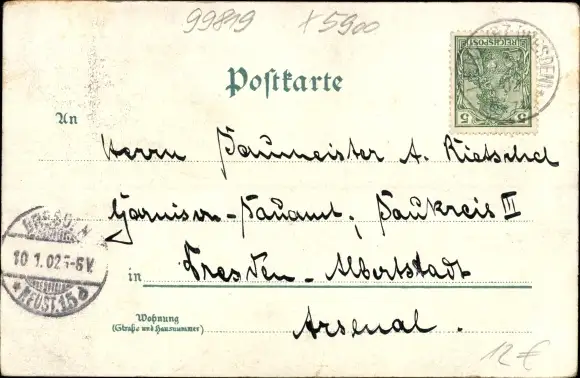 99819 x5900
REICHSPOST
5 5
DRESDEN
Postkarte
An
Herrn Baumeister A. Rietschel
Garnison-Bauamt, Baukreis III
DRESDEN
10.1.02 5-6V.
* NEUST. 15 d
in Dresden-Albertstadt
Wohnung
(Straße und Hausnummer)
Arsenal.
12€